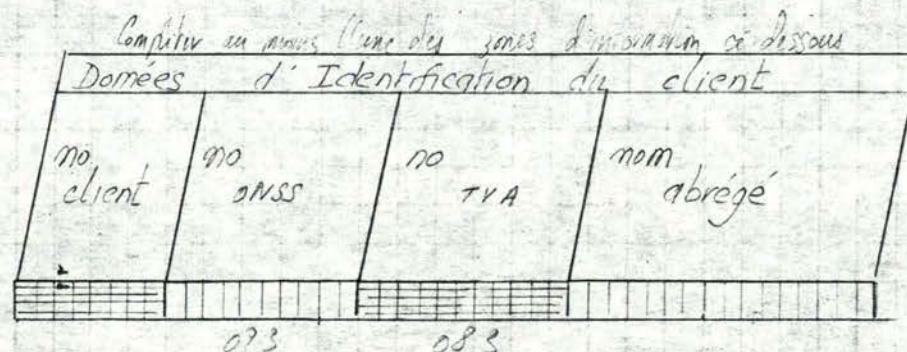 Compléter au moins l'une des zones d'information ci dessous
Données d'Identification du client
no client
no ONSS
no TVA
nom abrégé
093 083